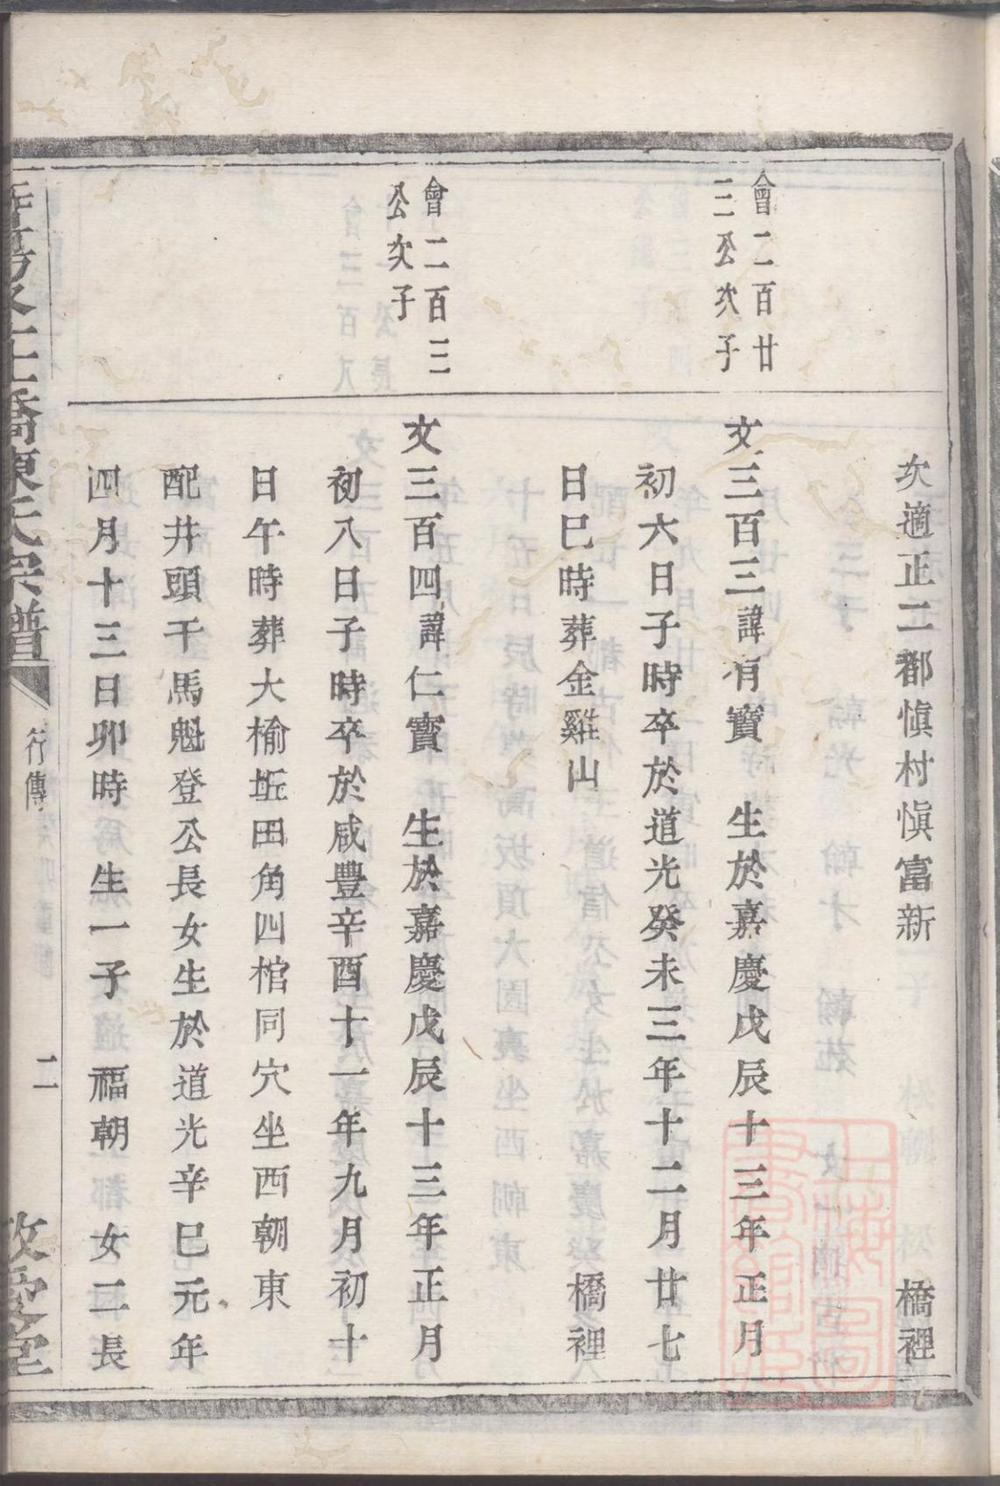 次適正二都愼村愼富新　橋裡
會二百廿
三公次子
文三百三諱有寶　生於嘉慶戊辰十三年正月
初六日子時卒於道光癸未三年十二月廿七
日巳時葬金雞山　橋裡
會二百三
公次子
文三百四諱仁寶　生於嘉慶戊辰十三年正月
初八日子時卒於咸豐辛酉十一年九月初十
日午時葬大榆坵田角四棺同穴坐西朝東
配井頭干馬魁登公長女生於道光辛巳元年
四月十三日卯時　生一子　福朝　女二長
橋陳氏宗譜
行傳
二